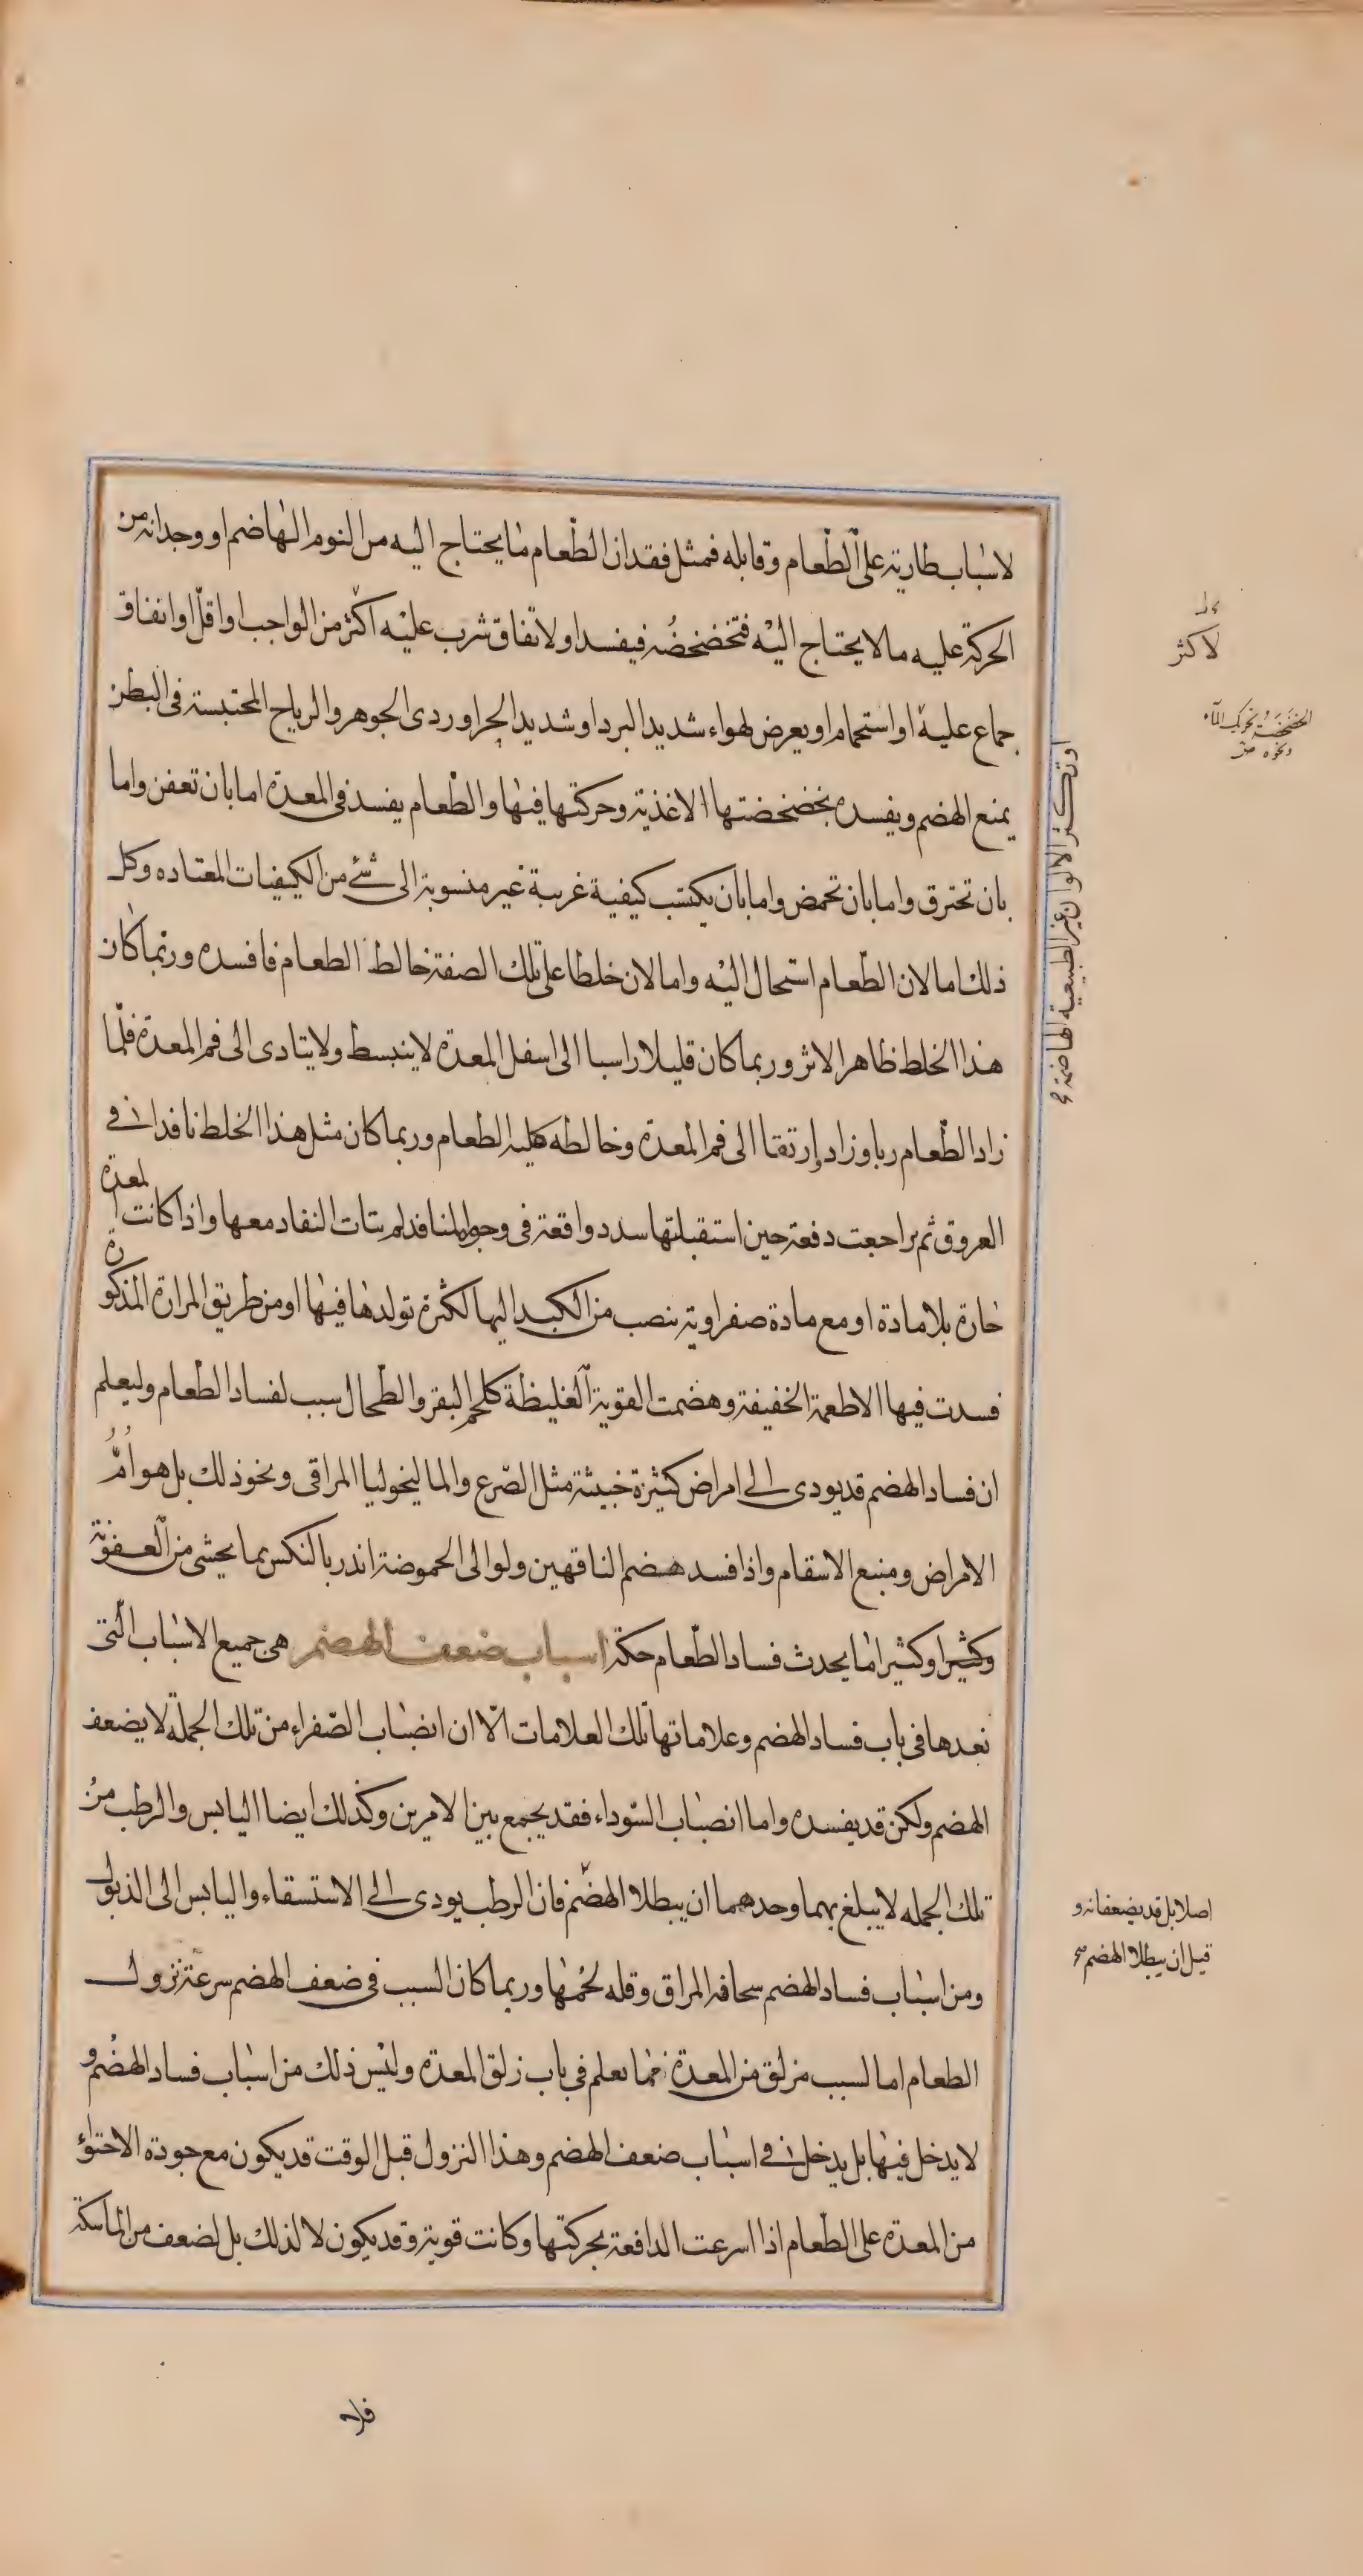 لاسباب طارية على الطعام وقابله فمثل فقدان الطعام ما يحتاج اليه من النوم الهاضم او وجدانه من
الحركة عليه ما لا يحتاج اليه فتخضخضه فيفسد او لاتفاق شرب عليه اكثر من الواجب او اقل او اتفاق
جماع عليه او استحمام او يعرض لهواء شديد البرد او شديد الحر او ردى الجوهر والرياح المحتبسة فى البطن
يمنع الهضم ويفسده بخضخضتها الاغذية وحركتها فيها والطعام يفسد فى المعدة اما بان تعفن واما
بان تحترق واما بان تحمض واما بان يكتسب كيفية غريبة غير منسوبة الى شئ من الكيفيات المعتاده وكل
ذلك اما لان الطعام استحال اليه واما لان خلطا على تلك الصفة خالط الطعام فافسده وربما كان
هذا الخلط ظاهر الاثر وربما كان قليلا راسبا الى اسفل المعدة لا ينبسط ولا يتادى الى فم المعدة فلما
زاد الطعام ربا وزاد وارتقا الى فم المعدة وخالطه كلية الطعام وربما كان مثل هذا الخلط نافدا فى
العروق ثم تراجعت دفعة حين استقبلتها سدد واقعة فى وجوه المنافد لم يتات النفاد معها واذا كانت المعدة
حارة بلا مادة او مع مادة صفراوية تنصب من الكبد اليها لكثرة تولدها فيها او من طريق المرارة المذكورة
فسدت فيها الاطعمة الخفيفة وهضمت القوية الغليظة كلحم البقر والطحال سبب لفساد الطعام وليعلم
ان فساد الهضم قد يودى الى امراض كثيرة خبيثة مثل الصرع والماليخوليا المراقى ونحو ذلك بل هو ام
الامراض ومنبع الاسقام واذا فسد هضم الناقهين ولو الى الحموضة اندر بالنكس بما يحشى من العفونة
وكثيرا وكثيرا ما يحدث فساد الطعام حكة اسباب ضعف الهضم هى جميع الاسباب التى
نعدها فى باب فساد الهضم وعلاماتها تلك العلامات الا ان انصباب الصفراء من تلك الجملة لا يضعف
الهضم ولكن قد يفسده واما انصباب السوداء فقد يجمع بين الامرين وكذلك ايضا اليابس والرطب من
تلك الجمله لا يبلغ بهما وحدهما ان يبطلا الهضم فان الرطب يودى الى الاستسقاء واليابس الى الذبول
ومن اسباب فساد الهضم سحافة المراق وقله لحمها وربما كان السبب فى ضعف الهضم سرعة نزول
الطعام اما لسبب مزلق من المعدة مما تعلم فى باب زلق المعدة وليس ذلك من اسباب فساد الهضم و
لا يدخل فيها بل يدخل فى اسباب ضعف الهضم وهذا النزول قبل الوقت قد يكون مع جودة الاحتواء
من المعدة على الطعام اذا اسرعت الدافعة بحركتها وكانت قوية وقد يكون لا لذلك بل لضعف من الماسكة
لاكثر
الخضخضة تحريك الماء
ونحوه
او تكثر الالوان غير الطبيعية الهاضمة
اصلا بل قد يضعفانه و
قبل ان يبطلا الهضم